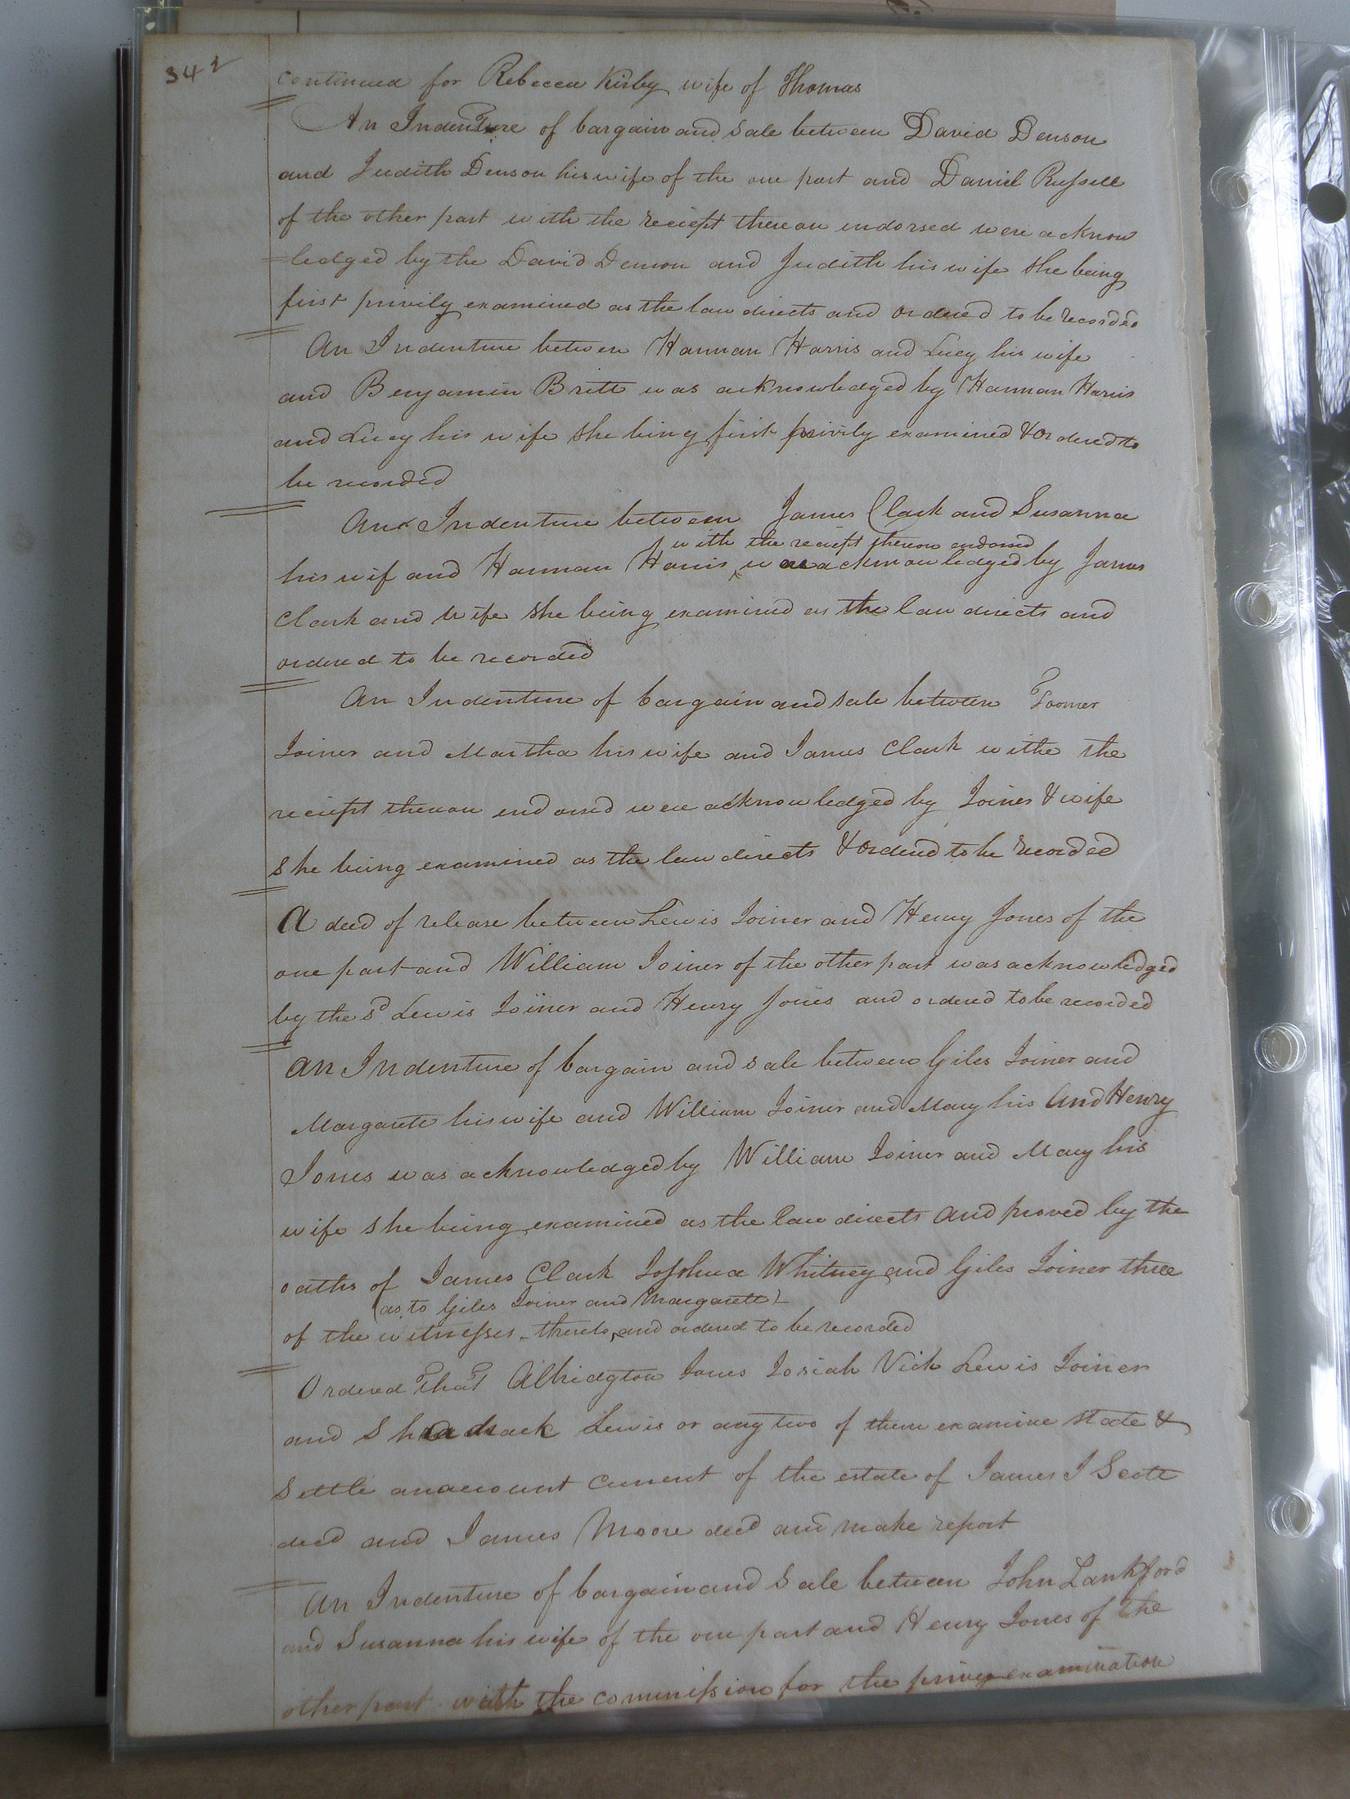 342
continued for Rebecca Kirby wife of Thomas
An Indenture of bargain and sale between David Denson
and Judith Denson his wife of the one part and Daniel Russell
of the other part with the reciept thereon endorsed were acknow
=ledged by the David Denson and Judith his wife she being
first privily examined as the law directs and ordered to be recorded
An Indenture between Hannan Harris and Lucy his wife
and Benjamin Britt was acknowledged by Hannan Harris
and Lucy his wife she being first privily examined & Ordered to
be recorded
An Indenture between James Clark and Susanna
with the reciept thereon endorsed
his wif and Hannan Harris was acknowledged by James
Clark and wife she being examined as the law directs and
ordered to be recorded
An Indenture of bargain and sale between Toomer
Joiner and Martha his wife and James Clark withe the
reciept thereon endorsed were acknowledged by Joiner & wife
she being examined as the law directs & ordered to be recorded
A deed of release between Lewis Joiner and Henry Jones of the
one part and William Joiner of the other part was acknowledged
by the sd Lewis Joiner and Henry Jones and ordered to be recorded
An Indenture of bargain and sale between Giles Joiner and
Margarett his wife and William Joiner and Mary his and Henry
Jones was acknowledged by William Joiner and Mary his
wife she being examined as the law directs and proved by the
oaths of James Clark Joshua Whitney and Giles Joiner three
(as to Giles Joiner and Margarett)
of the witnesses thereto, and ordered to be recorded
Ordered That Albridgton Jones Josiah Vick Lewis Joiner
and Shadrack Lewis or any two of them examine state &
Settle an account current of the estate of James J Scott
decd and James Moore decd and make report
An Indenture of bargain and sale between John Lankford
and Susanna his wife of the one part and Henry Jones of the
other part with the commission for the privy examination